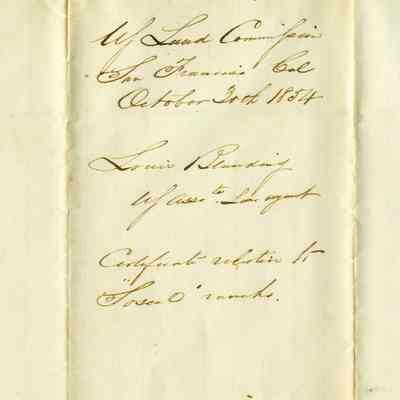 US Land Commission
San Francisco Cal
October 20th 1854
Louis Blanding
US Asso te Law agent
Certificate relative to
"Soscol" rancho.